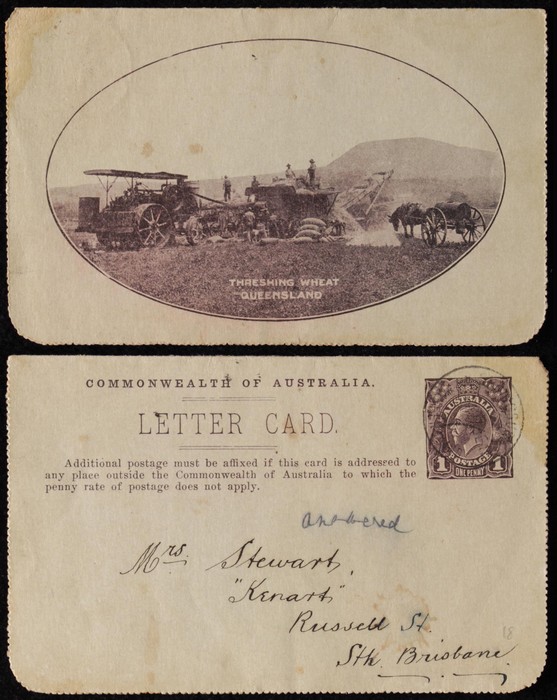 THRESHING WHEAT
QUEENSLAND
COMMONWEALTH OF AUSTRALIA.
LETTER CARD.
Additional postage must be affixed if this card is addressed to
any place outside the Commonwealth of Australia to which the
penny rate of postage does not apply.
AUSTRALIA
POSTAGE
1 ONE PENNY 1
answered
Mrs. Stewart,
"Kenart"
Russell St.
Sth. Brisbane.
18